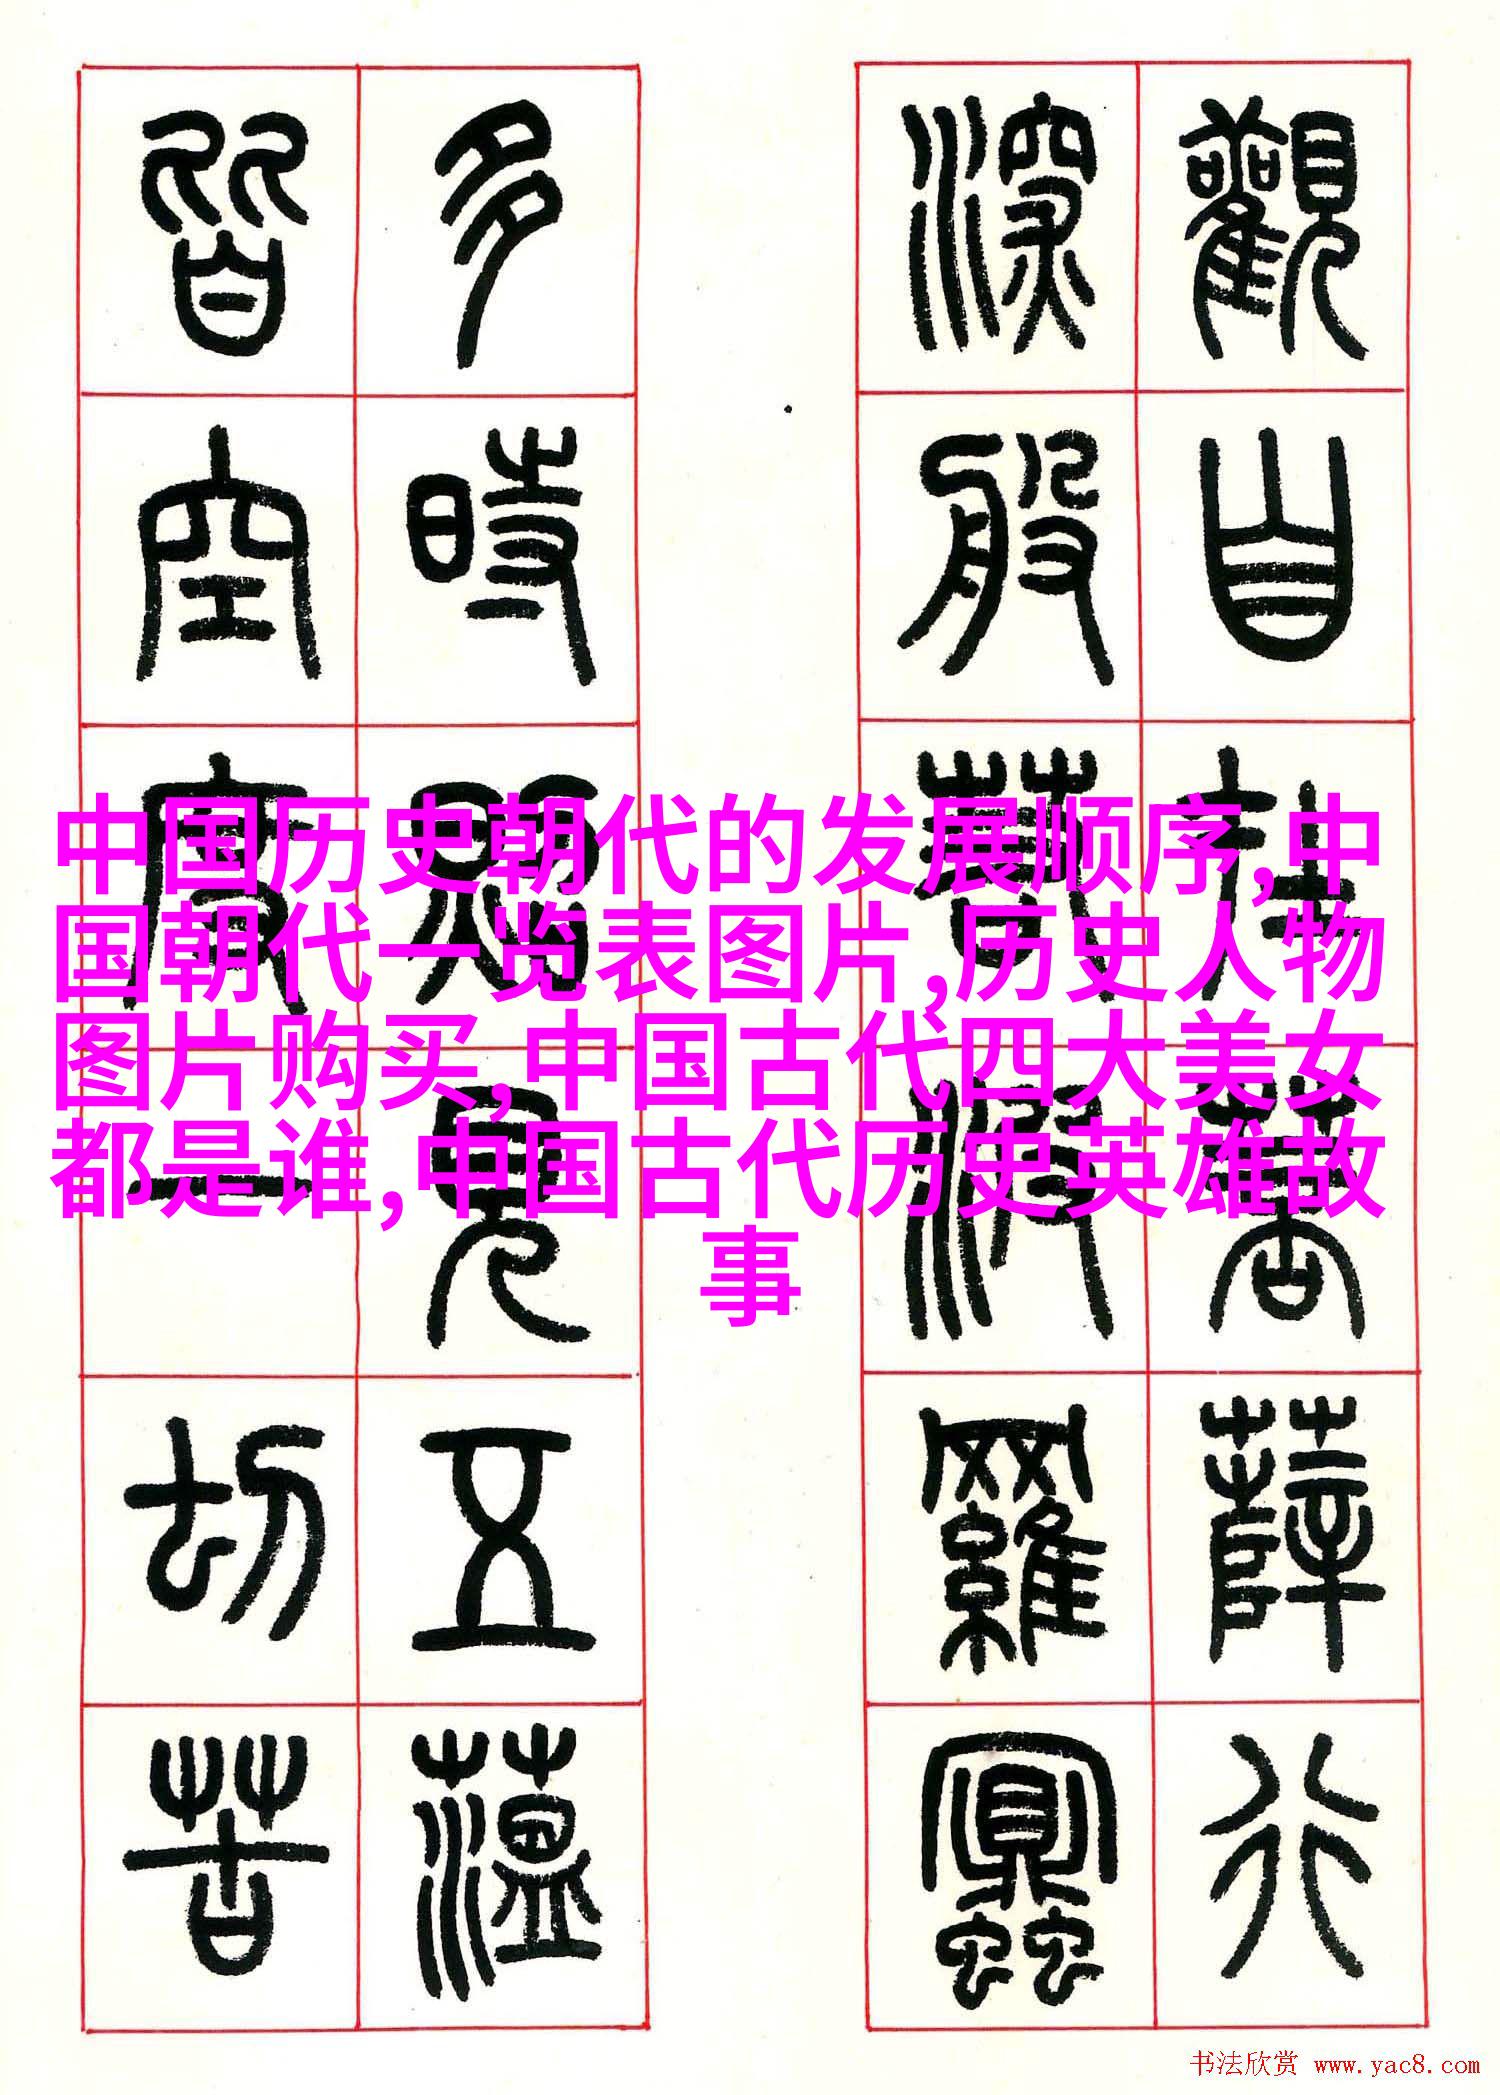 觀自在菩薩行
深般若波羅蜜
多時照見五蘊
皆空度一切苦
中国历史朝代的发展顺序,中
国朝代一览表图片,历史人物
图片购买,中国古代四大美女
都是谁,中国古代历史英雄故
事
书法欣赏 www.yac8.com